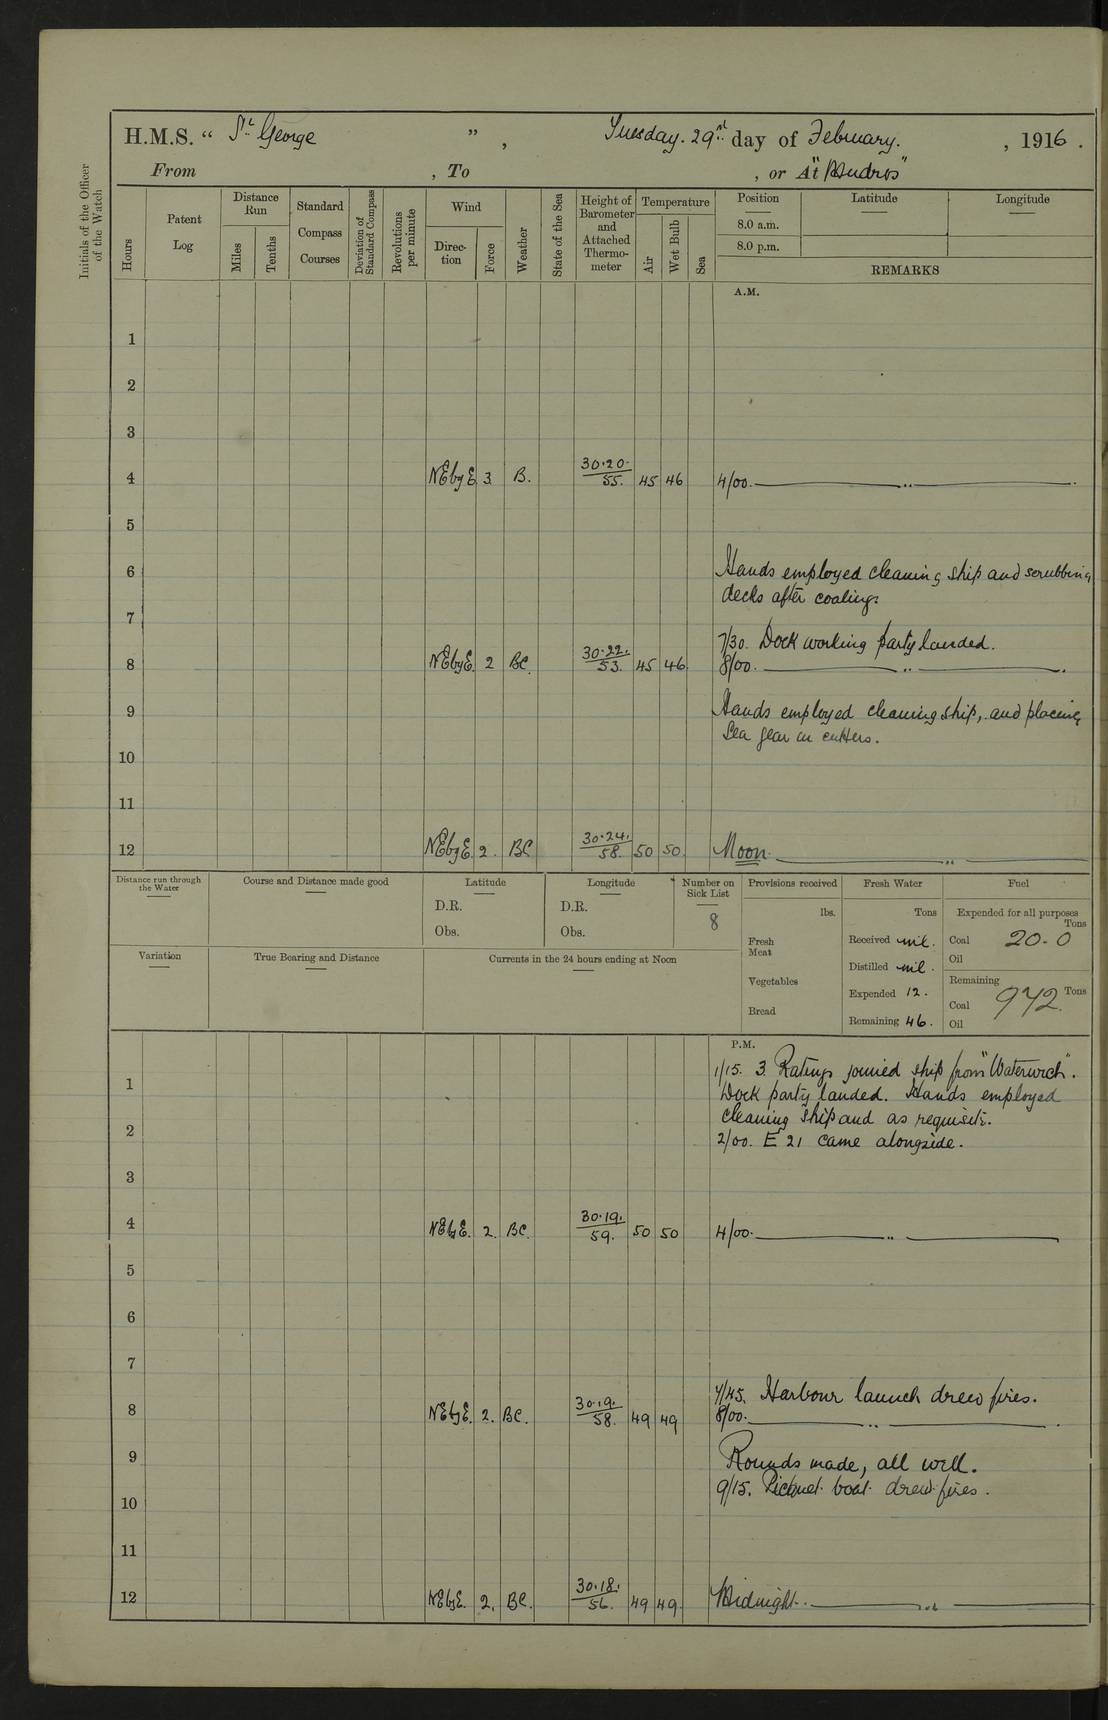 H.M.S. " St George ", Tuesday. 29th day of February. , 1916.
From , To , or At "Mudros"
Initials of the Officer of the Watch
Hours
Patent Log
Distance Run
Miles
Tenths
Standard Compass Courses
Deviation of Standard Compass
Revolutions per minute
Wind
Direction
Force
Weather
State of the Sea
Height of Barometer and Attached Thermometer
Temperature
Air
Wet Bulb
Sea
Position
Latitude
Longitude
8.0 a.m.
8.0 p.m.
REMARKS
A.M.
1
2
3
4 NEbyE 3 B. 30.20. 55. 45 46 4/00. ———— „ ————
5
6 Hands employed cleaning ship and scrubbing
decks after coaling.
7
7/30. Dock working party landed.
8 NEbyE. 2 BC. 30.22. 53. 45 46. 8/00. ———— „ ————
9 Hands employed cleaning ship, and placing
Sea gear in cutters.
10
11
12 NEbyE. 2. BC 30.24. 58. 50 50. Noon. ———— „ ————
Distance run through the Water
Course and Distance made good
Latitude
D.R.
Obs.
Longitude
D.R.
Obs.
Number on Sick List
8
Provisions received
lbs.
Fresh Meat
Vegetables
Bread
Fresh Water
Tons
Received nil.
Distilled nil.
Expended 12.
Remaining 46.
Fuel
Expended for all purposes
Tons
Coal 20.0
Oil
Remaining
Tons
Coal 972.
Oil
Variation
True Bearing and Distance
Currents in the 24 hours ending at Noon
P.M.
1/15. 3. Ratings joined ship from "Waterwich".
1 Dock party landed. Hands employed
cleaning ship and as requisite.
2 2/00. E 21 came alongside.
3
4 NEbyE. 2. BC. 30.19. 59. 50 50 4/00. ———— „ ————
5
6
7
7/45. Harbour launch drew fires.
8 NEbyE. 2. BC. 30.19. 58. 49 49 8/00. ———— „ ————
9 Rounds made, all well.
9/15. Picquet boat drew fires.
10
11
12 NEbyE. 2. BC. 30.18. 56. 49 49. Midnight. ———— „ ————